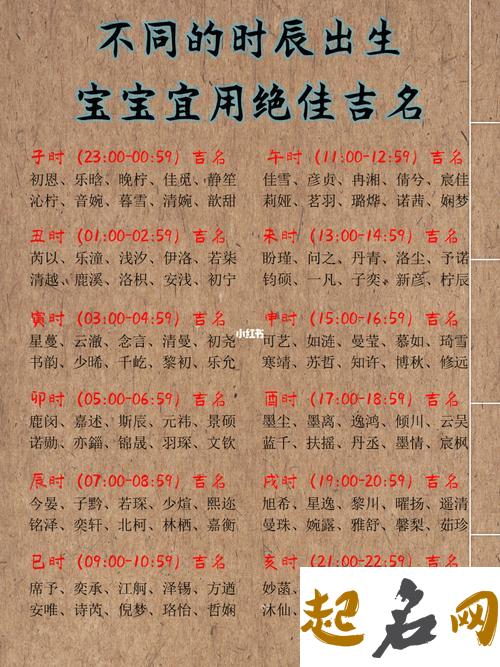 不同的时辰出生
宝宝宜用绝佳吉名
子时（23:00-00:59）吉名
初恩、乐晗、晚柠、佳觅、静笙
沁柠、音婉、暮雪、清婉、歆甜
丑时（01:00-02:59）吉名
芮以、乐潼、浅汐、伊洛、若柒
清越、鹿溪、洛枳、安浅、初宁
寅时（03:00-04:59）吉名
星蔓、云澈、念言、清曼、初尧
书韵、少晞、千屹、黎初、乐允
卯时（05:00-06:59）吉名
鹿闵、嘉述、斯辰、元祎、景硕
诺勋、亦鎦、锦晟、羽琛、文钦
辰时（07:00-08:59）吉名
今晏、子黔、若琛、少煊、熙迩
铭泽、奕轩、北柯、林栖、嘉衡
巳时（09:00-10:59）吉名
席予、奕承、江舸、泽锡、方遒
安唯、诗芮、倪梦、珞怡、哲娴
午时（11:00-12:59）吉名
佳雪、彦贞、冉湘、倩兮、宸佳
莉娅、茗羽、璐烨、诺茜、娴梦
未时（13:00-14:59）吉名
盼瑾、问之、丹青、洛尘、予诺
钧硕、一凡、子奕、新彦、柠辰
申时（15:00-16:59）吉名
可艺、如涟、曼莹、慕如、琦雪
寒靖、苏哲、知许、博秋、修远
酉时（17:00-18:59）吉名
墨尘、墨离、逸鸿、倾川、云吴
蓝千、扶摇、丹丞、墨情、宸枫
戌时（19:00-20:59）吉名
旭希、星逸、黎川、曜扬、遥清
曼珠、婉露、雅舒、馨梨、茹珍
亥时（21:00-22:59）
妙菡、
沐仙、
小红书
起名网